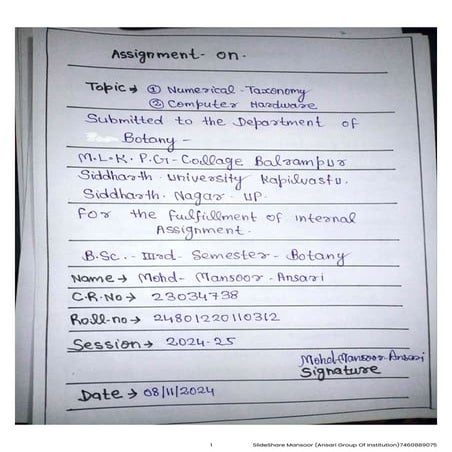 Assignment- on.
Topic → ① Numerical-Taxonomy
② Computer Hardware
Submitted to the Department of
Botany -
M.L.K. P.G- Collage Balrampur
Siddharth university Kapilvastu.
Siddharth. Nagar. UP.
For the Fulfillment of Internal
Assignment.
B.Sc. - IIIrd- Semester- Botany
Name → Mohd- Mansoor-Ansari
C.R.No → 23034738
Roll-no → 24801220110312
Session → 2024-25
Mohd-Mansoor-Ansari
Signature
Date → 08/11/2024
1 SlideShare Mansoor (Ansari Group Of Institution)7460889075